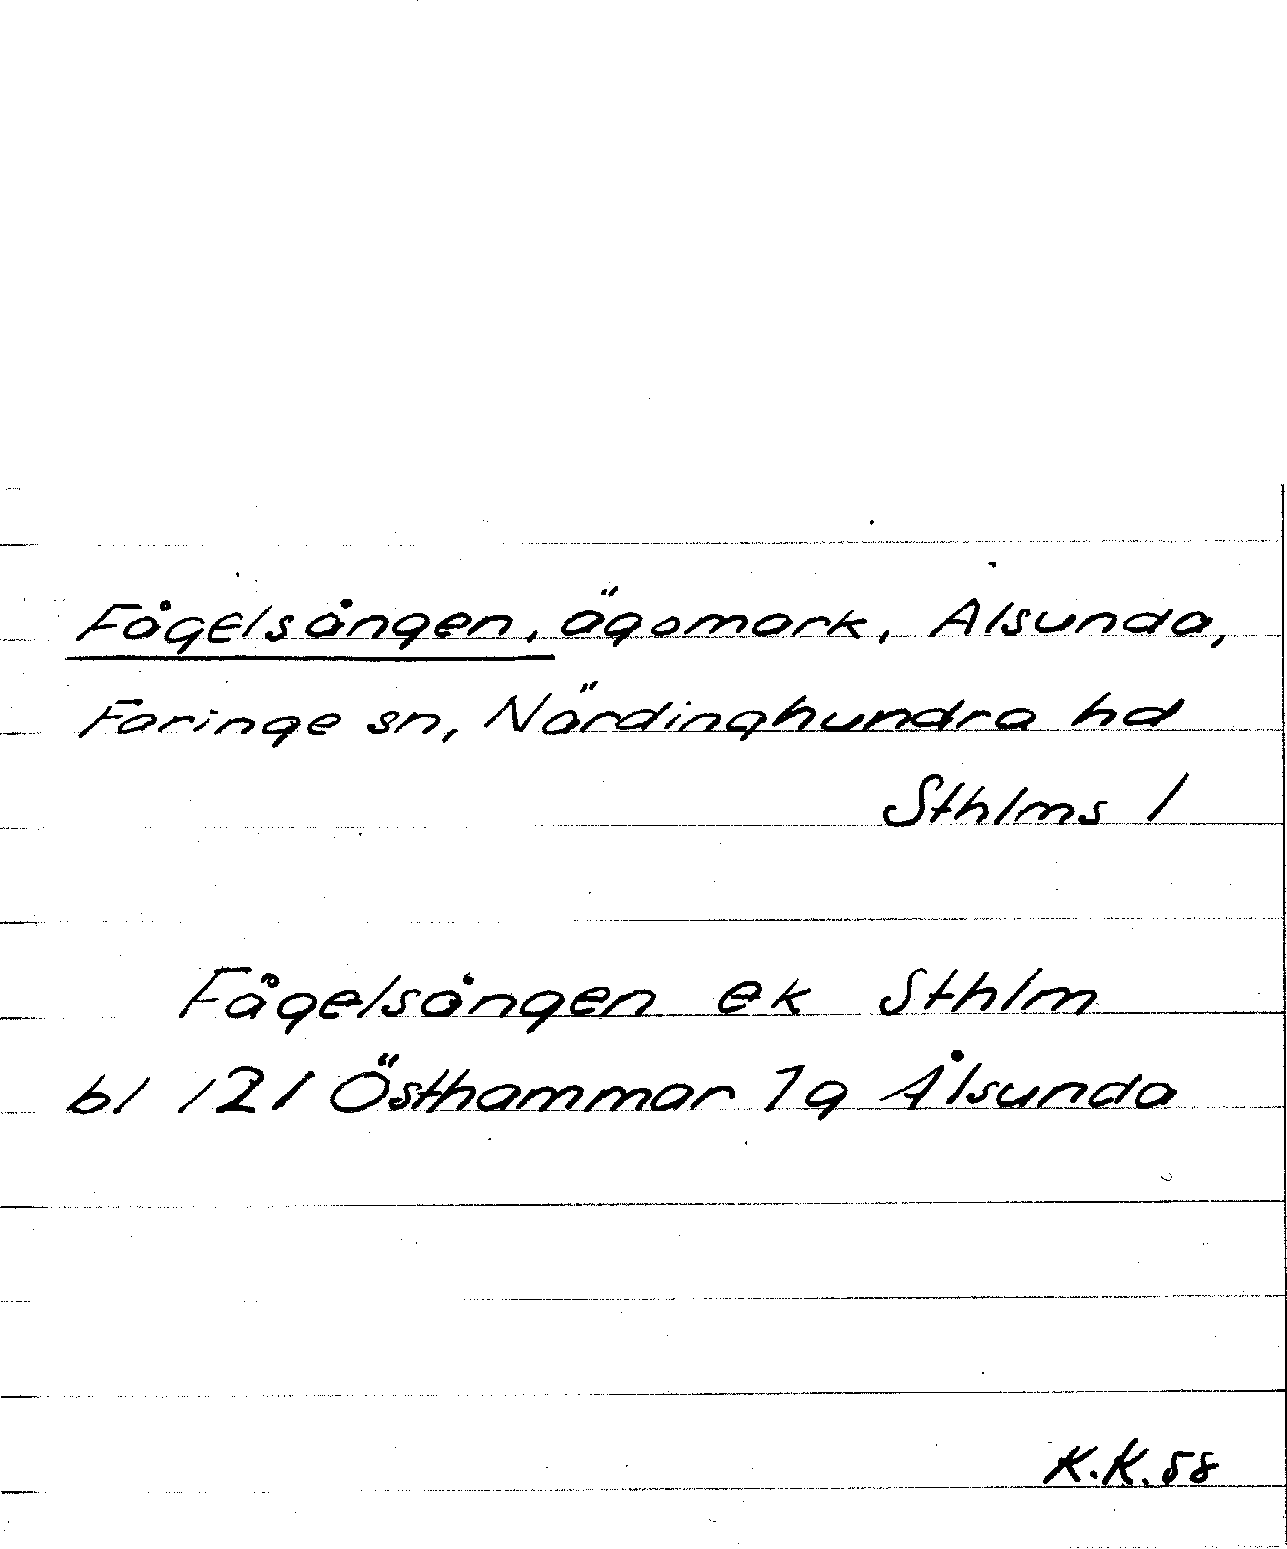 Fågelsången, ägomark, Alsunda,
Faringe sn, Närdinghundra hd
Sthlms l
Fågelsången ek Sthlm
bl 121 Östhammar 7g Ålsunda
K.K. 58